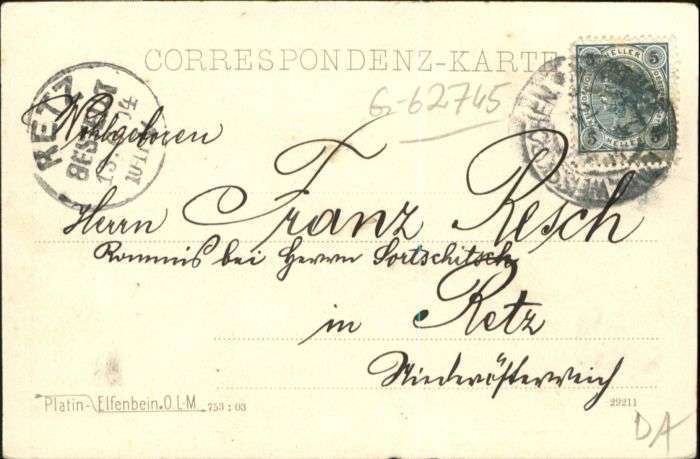 CORRESPONDENZ-KARTE
5 HELLER 5
5 HELLER 5
RETZ
BESTELLT
G-62745
Wohlgeboren
Herrn Franz Resch
Kommis bei Herrn Sortschitsch
in Retz
Niederösterreich
Platin-Elfenbein.O.L-M 753 : 03
29211
DA